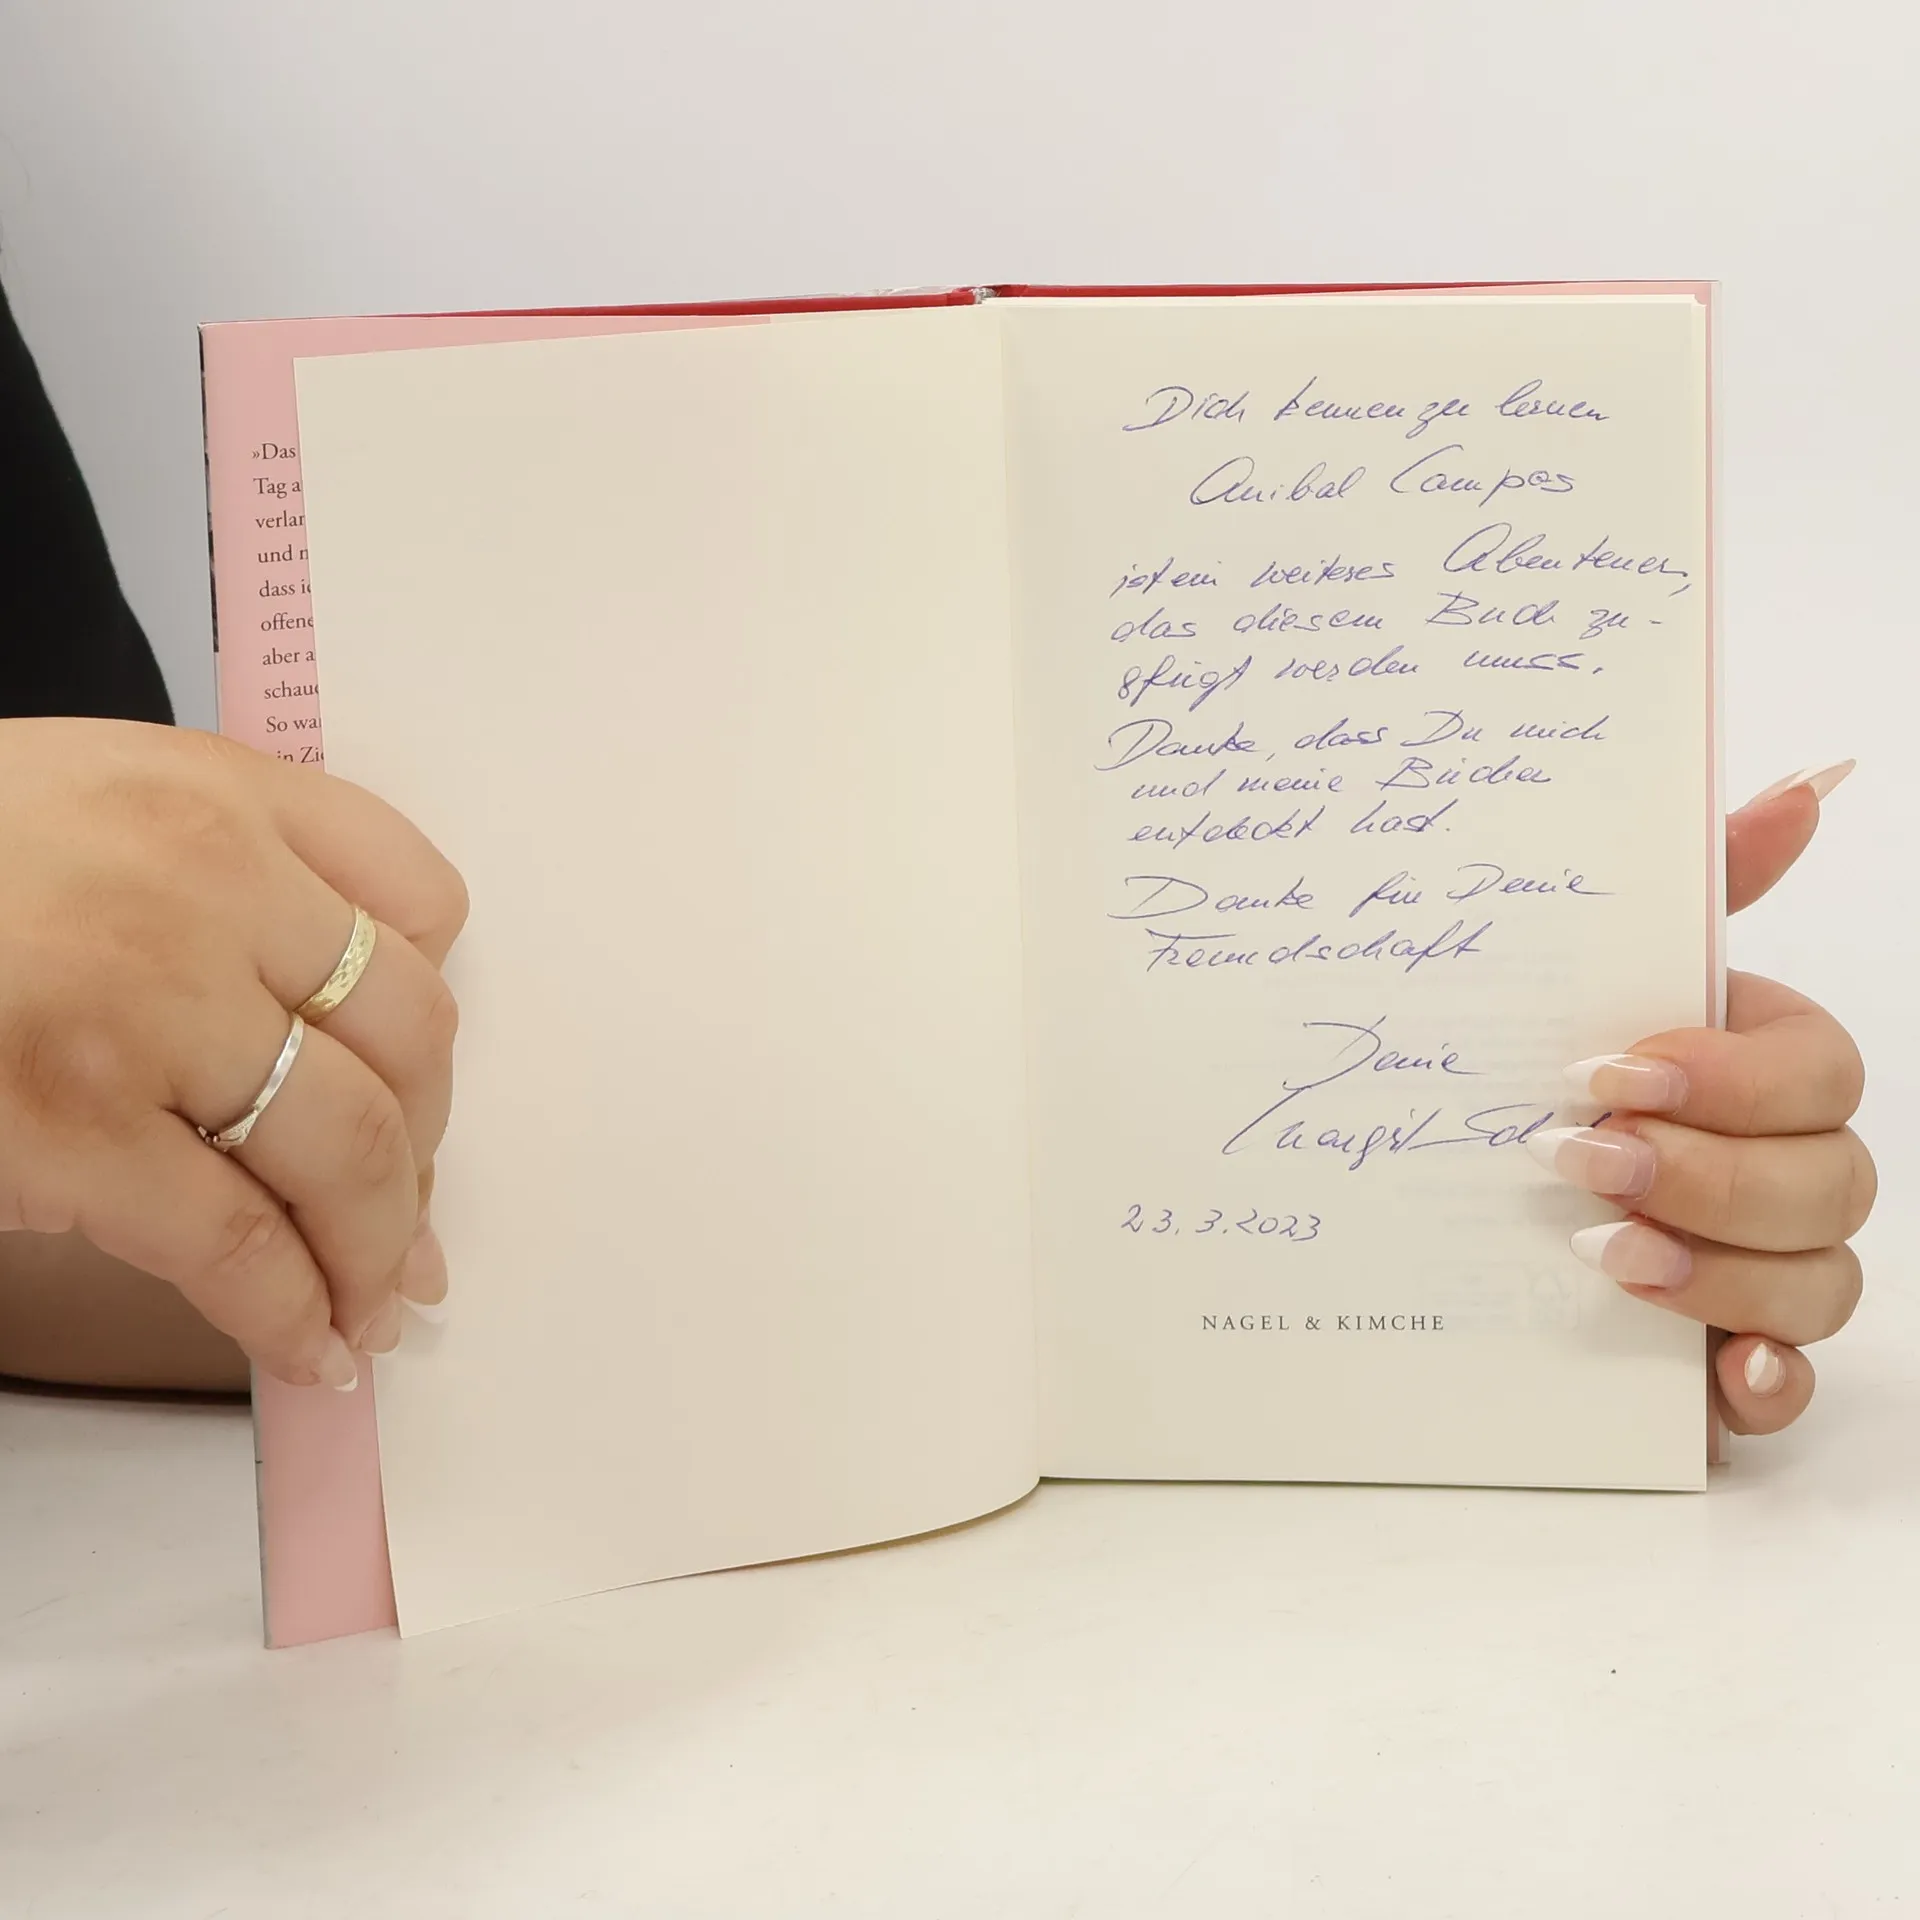 »Das
Tag a
verlan
und n
dass ic
offene
aber a
schaue
So wa
in Zie
Dich kennen zu lernen
Anibal Campos
ist ein weiteres Abenteuer,
das diesem Buch zu-
gfügt werden muss.
Danke, dass Du mich
und meine Bücher
entdeckt hast.
Danke für Deine
Freundschaft
Deine
Margit Sch
23.3.2023
NAGEL & KIMCHE